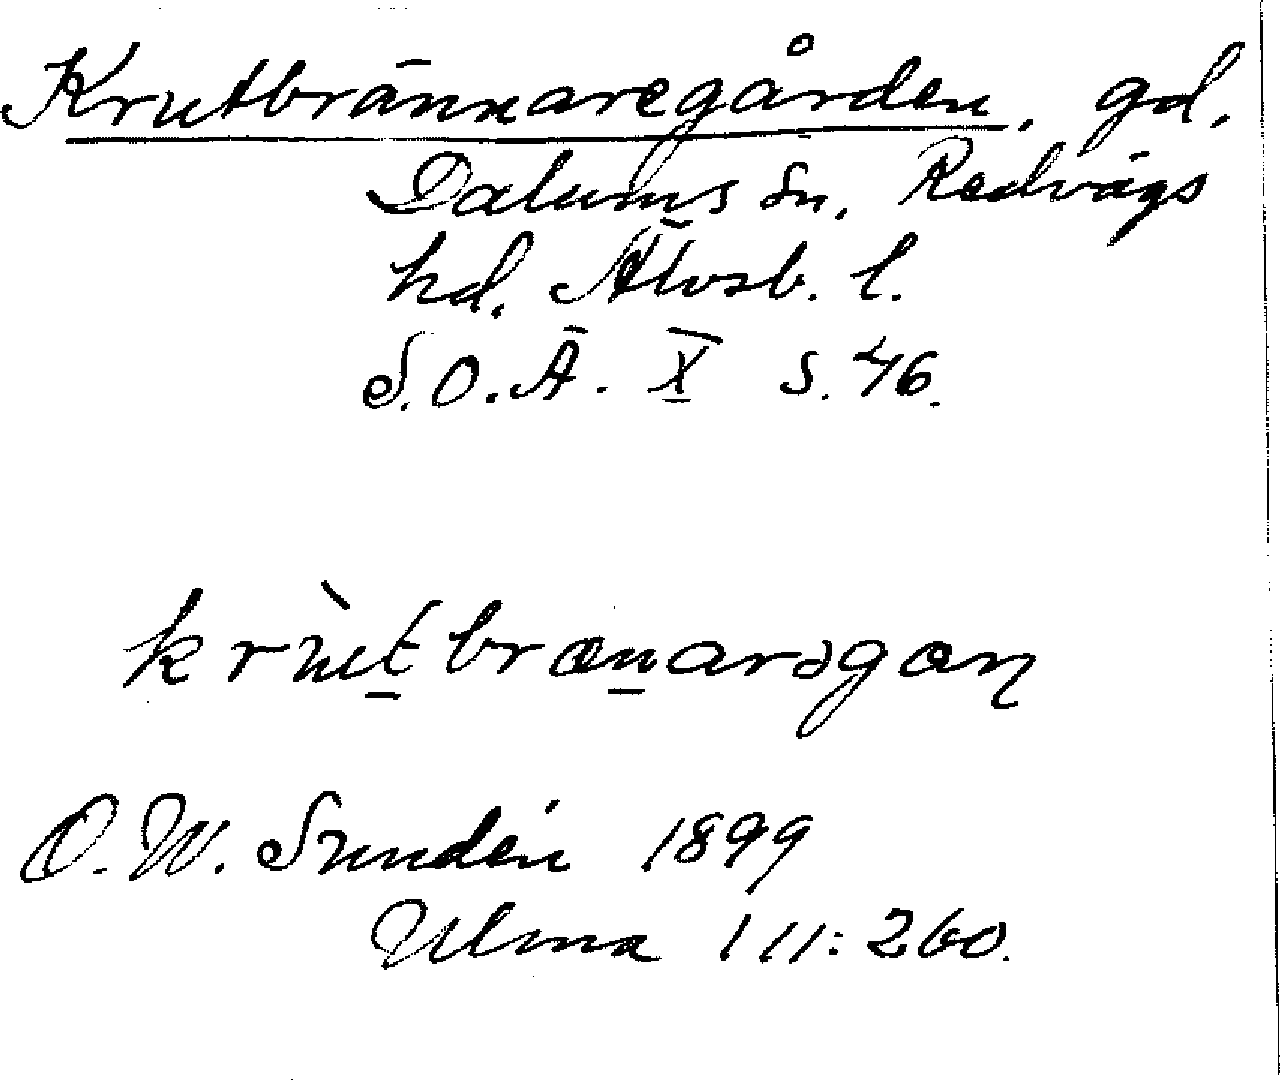 Krutbrännaregården, gd,
Dalums sn, Redvägs
hd. Älvsb. l.
S.O.Ä. X s. 46.
krùt̲bræn̲arəgɑɳ
O.W. Sundén 1899
Ulma 111:260.